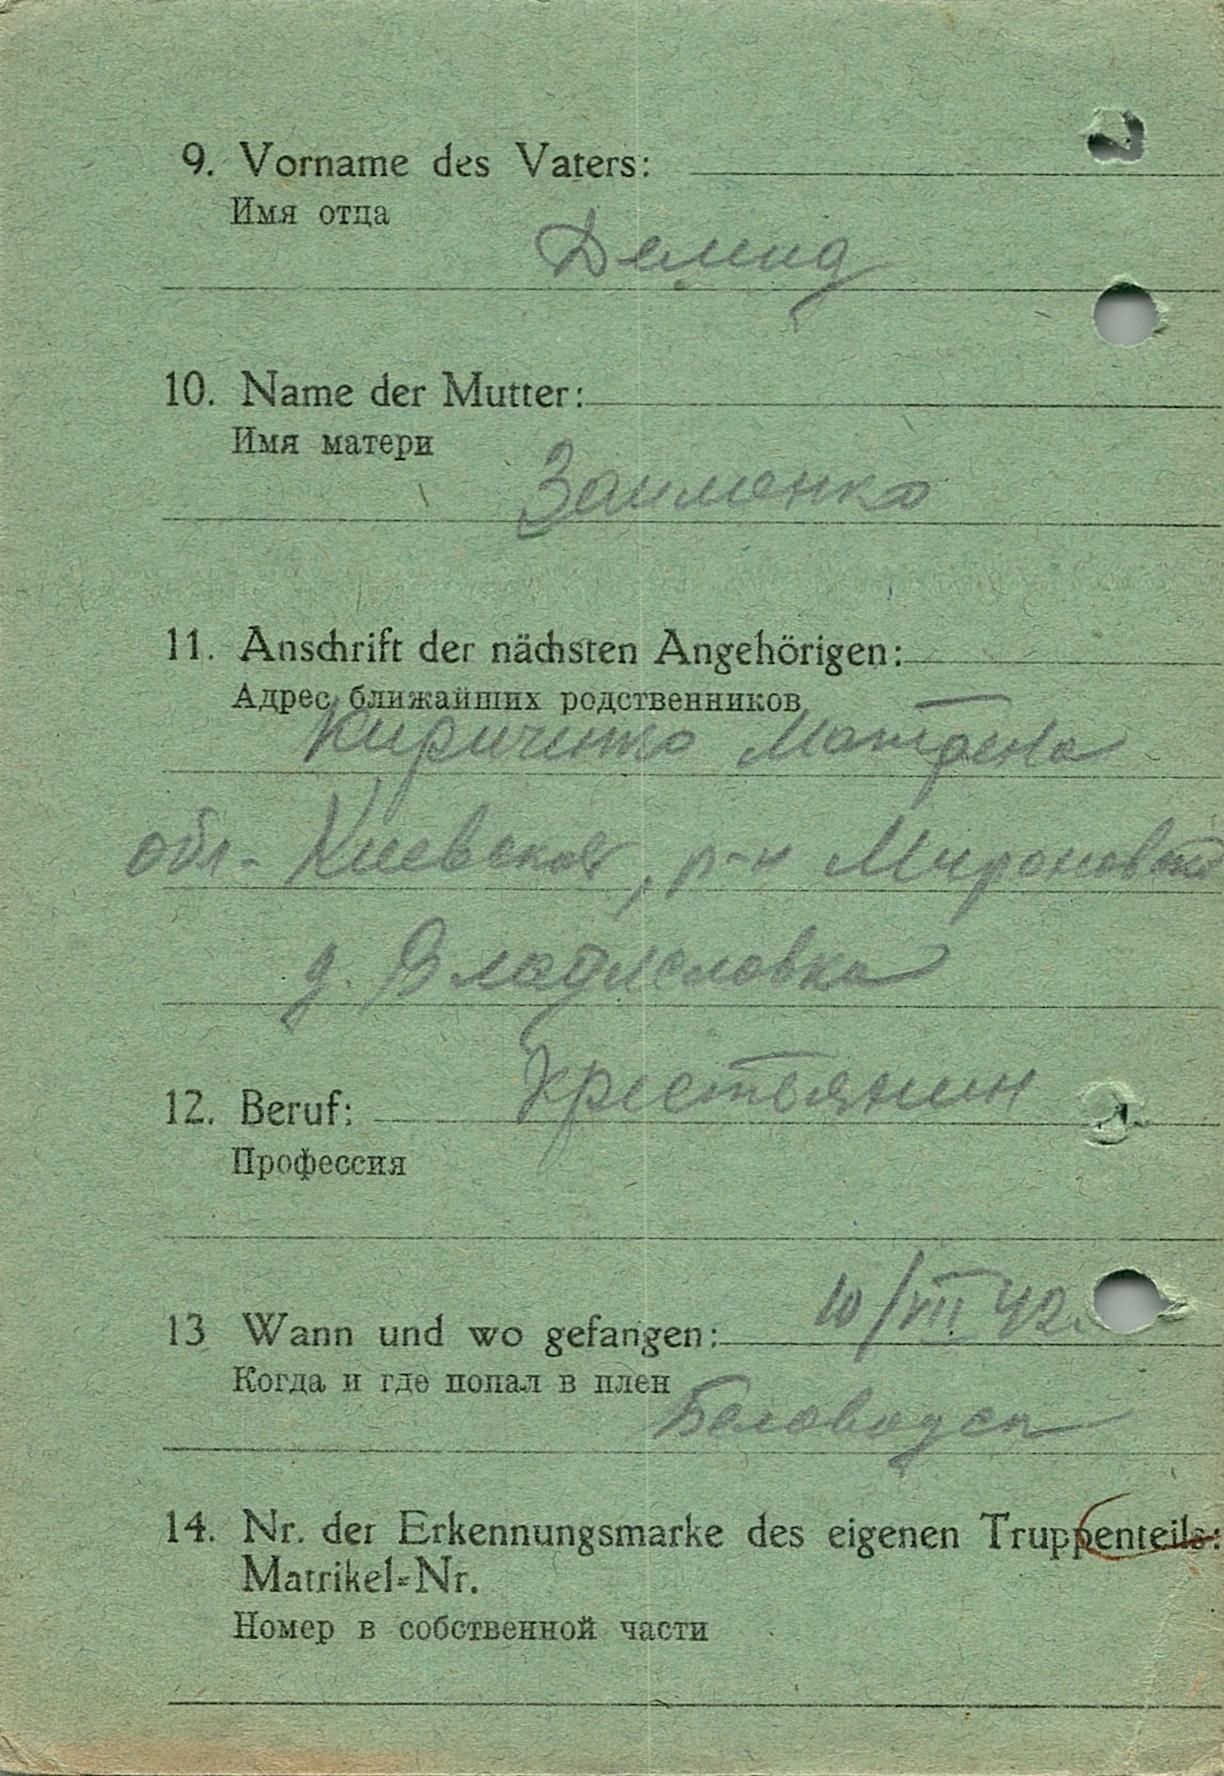 9. Vorname des Vaters:
Имя отца
Демид
10. Name der Mutter:
Имя матери
Заименко
11. Anschrift der nächsten Angehörigen:
Адрес ближайших родственников
Кириченко Матрена
обл- Киевская, р-н Мироновский
д. Владиславка
12. Beruf: Крестьянин
Профессия
13 Wann und wo gefangen: 10/VII 42.
Когда и где попал в плен
Беловодск
14. Nr. der Erkennungsmarke des eigenen Truppenteils:
Matrikel-Nr.
Номер в собственной части